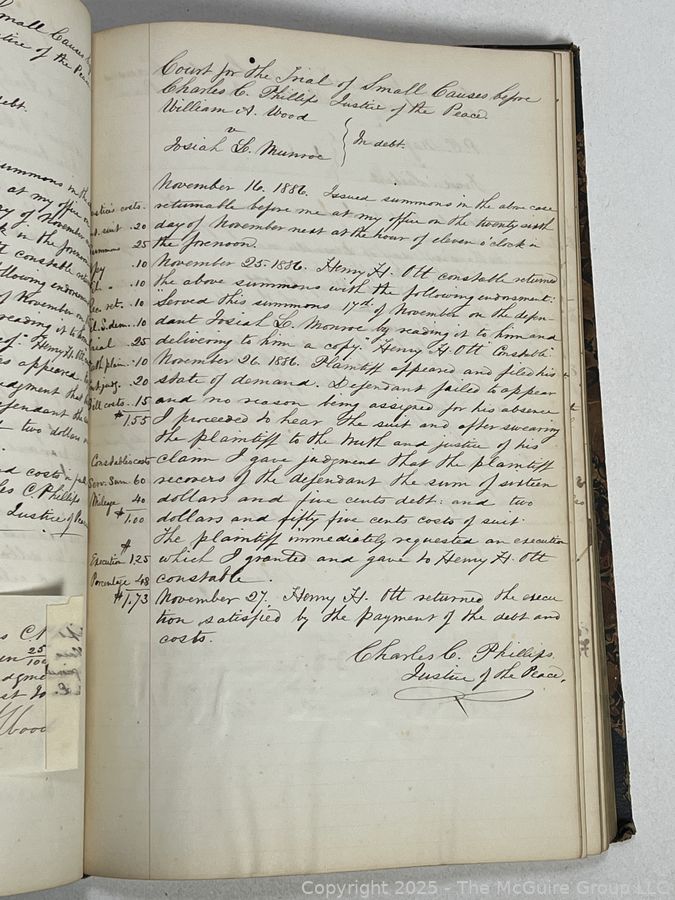 Small Causes
Justice of the Peace
debt.
summons in the
at my office
of November
in the forenoon
constable
following endorsement
of November on
reading it to him
of. Henry H. Ott
appeared
judgment that
defendant the
two dollars
costs
C. Phillips
Justice of Peace
C.
25
100
Wood
Court for the Trial of Small Causes before
Charles C. Phillips Justice of the Peace
William A. Wood
v
Josiah L. Munroe
In debt.
November 16. 1886. Issued summons in the above case
returnable before me at my office on the twenty sixth
day of November next at the hour of eleven o'clock in
the forenoon.
November 25. 1886. Henry H. Ott constable returned
the above summons with the following endorsment:
Served this summons 17th of November on the defen-
dant Josiah L. Monroe by reading it to him and
delivering to him a copy. Henry H. Ott Constable.
November 26. 1886. Plaintiff appeared and filed his
state of demand. Defendant failed to appear
and no reason being assigned for his absence
I proceeded to hear the suit and after swearing
the plaintiff to the truth and justice of his
claim I gave judgment that the plaintiff
recovers of the defendant the sum of sixteen
dollars and five cents debt: and two
dollars and fifty five cents costs of suit.
The plaintiff immediately requested an execution
which I granted and gave to Henry H. Ott
constable.
November 27. Henry H. Ott returned the execu
tion satisfied by the payment of the debt and
costs.
Charles C. Phillips.
Justice of the Peace.
costs.
suit .20
.25
.10
.10
ret. .10
& dem. .10
.25
plain. .10
judg. .20
Bill costs. .15
$1.55
Constables costs
Serv. Sum 60
Mileage 40
$1.00
$
Execution 1.25
Percentage 48
$1.73
Copyright 2025 - The McGuire Group LLC